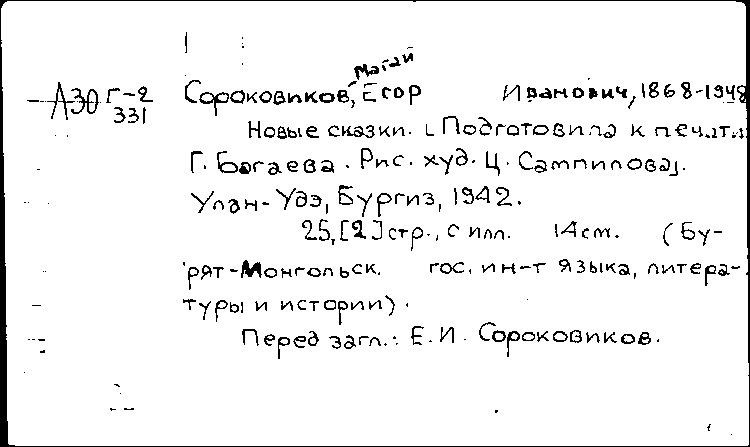 Магай
А30 Г-2 Сороковиков, Егор Иванович, 1868-1948
331
Новые сказки. [Подготовила к печати
Г. Багаева. Рис. худ. Ц. Сампилова].
Улан-Удэ, Бургиз, 1942.
25,[2]стр., с илл. 14см. (Бу-
рят-Монгольск. гос. ин-т языка, литера-
туры и истории).
Перед загл.: Е.И. Сороковиков.